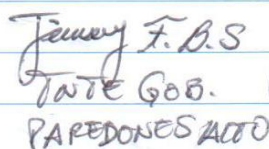 Jimmy F. B. S
TNTE GOB.
PAREDONES ALTO